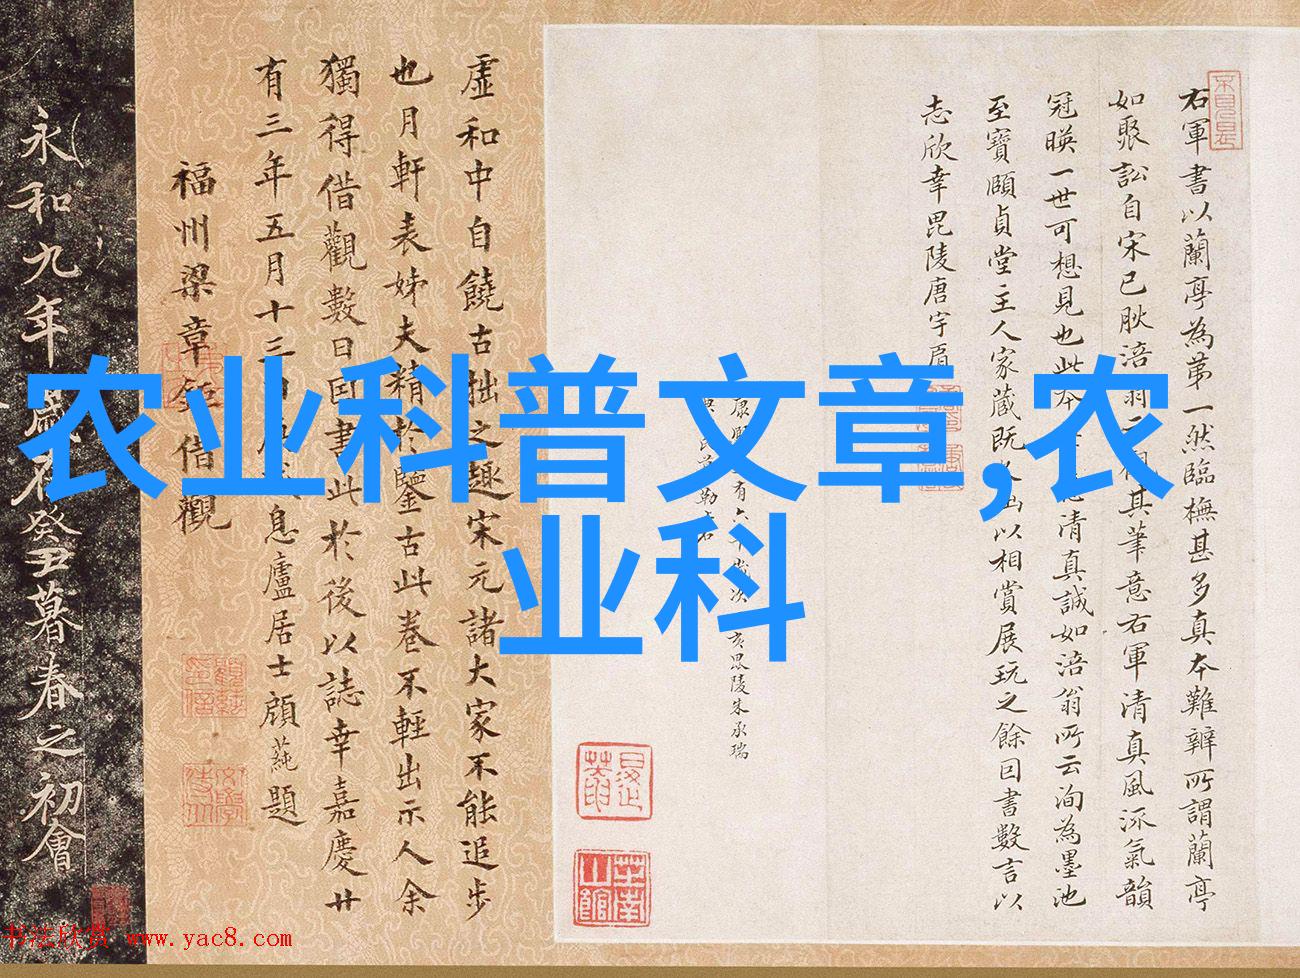 右軍書以蘭亭為第一然臨橅甚多真本難辨所謂蘭亭
如聚訟自宋已
其筆意右軍清真風流氣韻
冠暎一世可想見也此本
清真誠如涪翁所云洵為墨池
至寶頤貞堂主人家蔵既
以相賞展玩之餘因書數言以
志欣幸毘陵唐宇肩
亥毘陵朱承瑞
虛和中自饒古拙之趣宋元諸大家不能追步
也月軒表姊夫精於鑒古此卷不輕出示人余
獨得借觀數日因書此於後以誌幸嘉慶廿
有三年五月十三日
息廬居士顧蒓題
福州梁章鉅借觀
永和九年歲在癸丑暮春之初會
农业科普文章,农
业科
书法欣赏 www.yac8.com